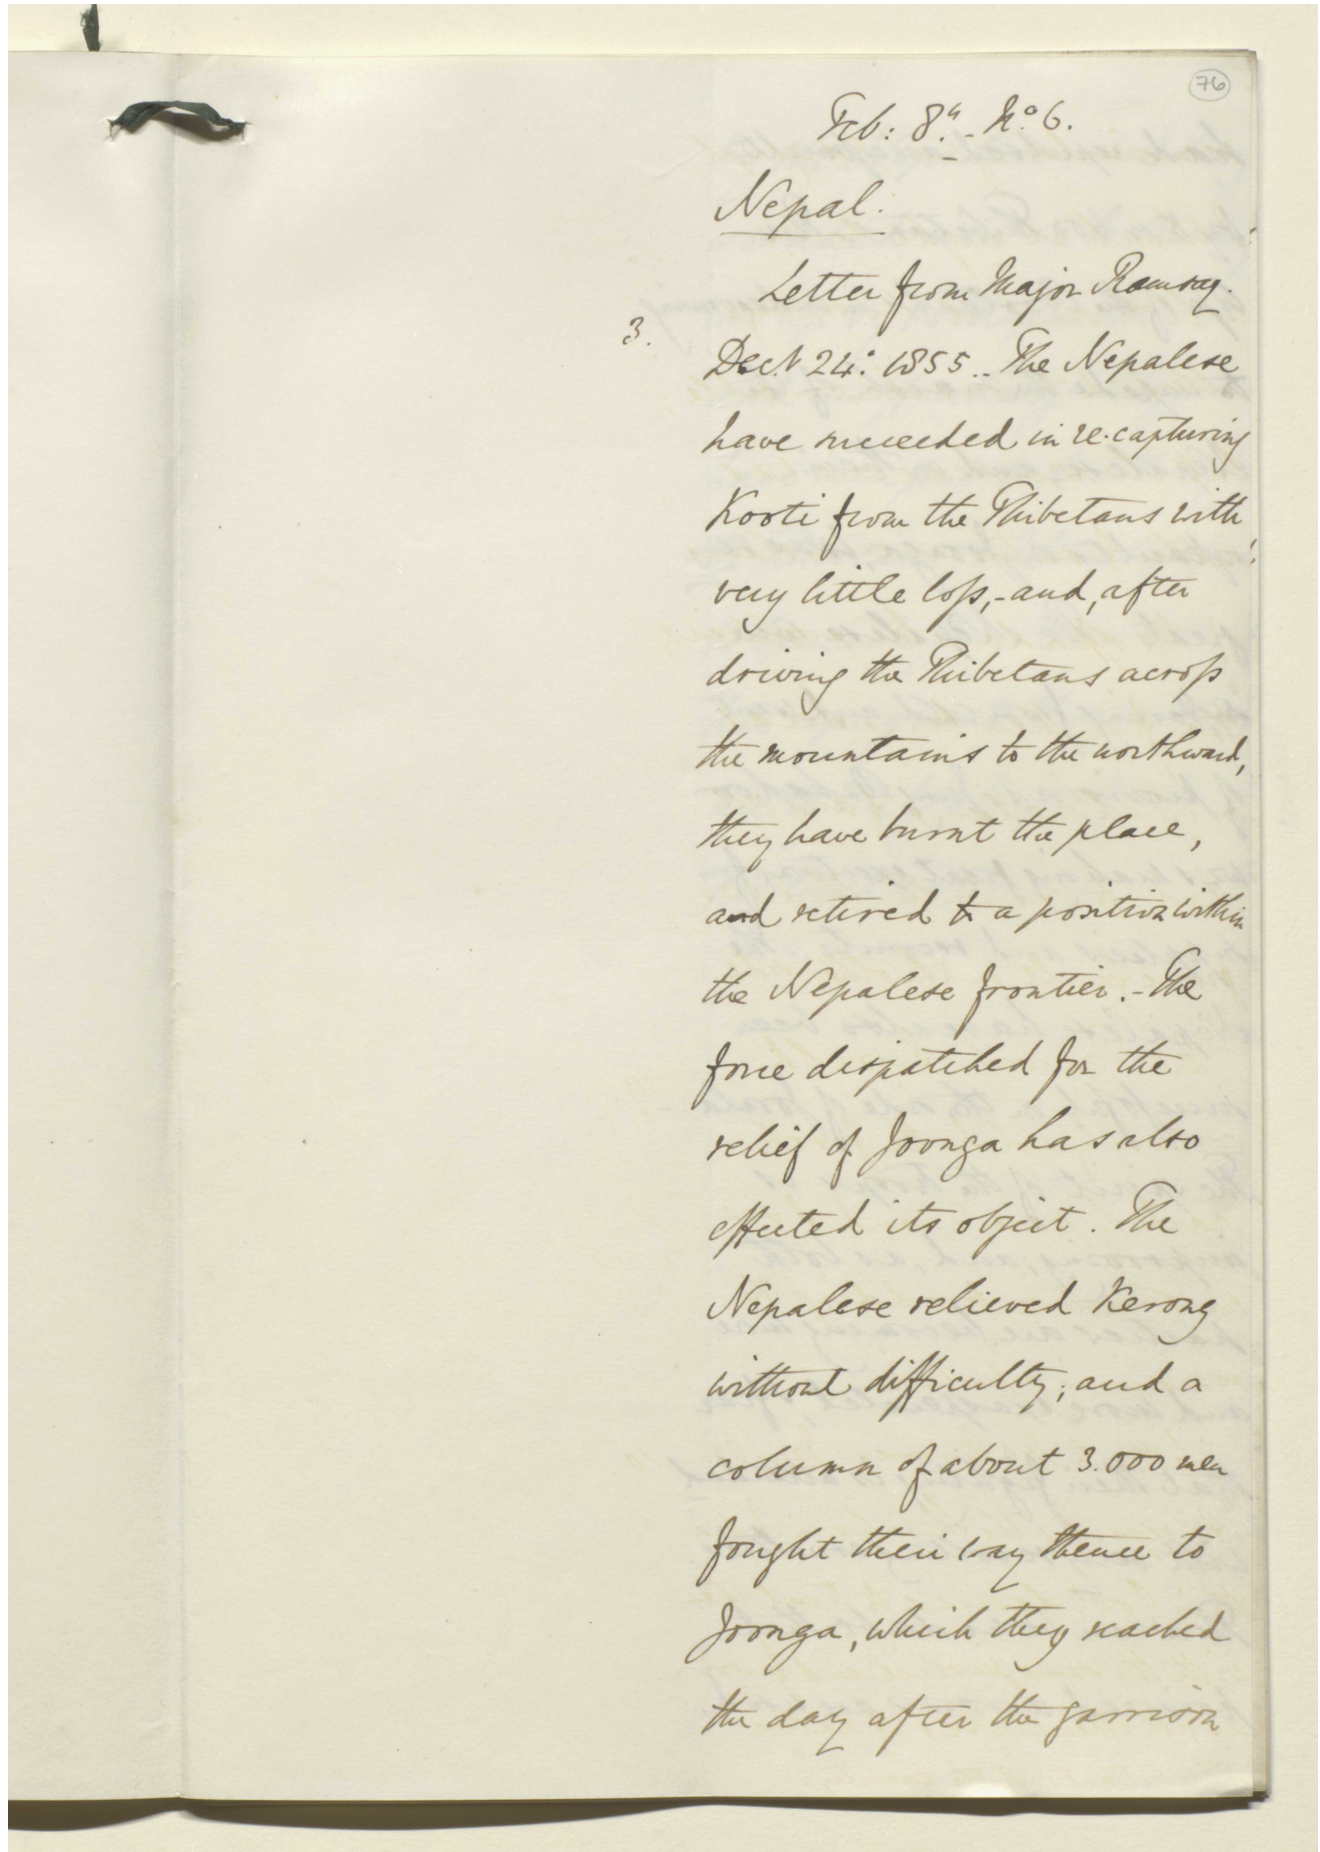 76
Feb: 8th. - No. 6.
Nepal.
Letter from Major Ramsay.
3.
Decr. 24: 1855.. The Nepalese
have succeeded in re-capturing
Kooti from the Thibetans with
very little loss,- and, after
driving the Thibetans across
the mountains to the northward,
they have burnt the place,
and retired to a position within
the Nepalese frontier. - The
force dispatched for the
relief of Joonga has also
effected its object. The
Nepalese relieved Kerong
without difficulty; and a
column of about 3.000 men
fought their way thence to
Joonga, which they reached
the day after the garrison